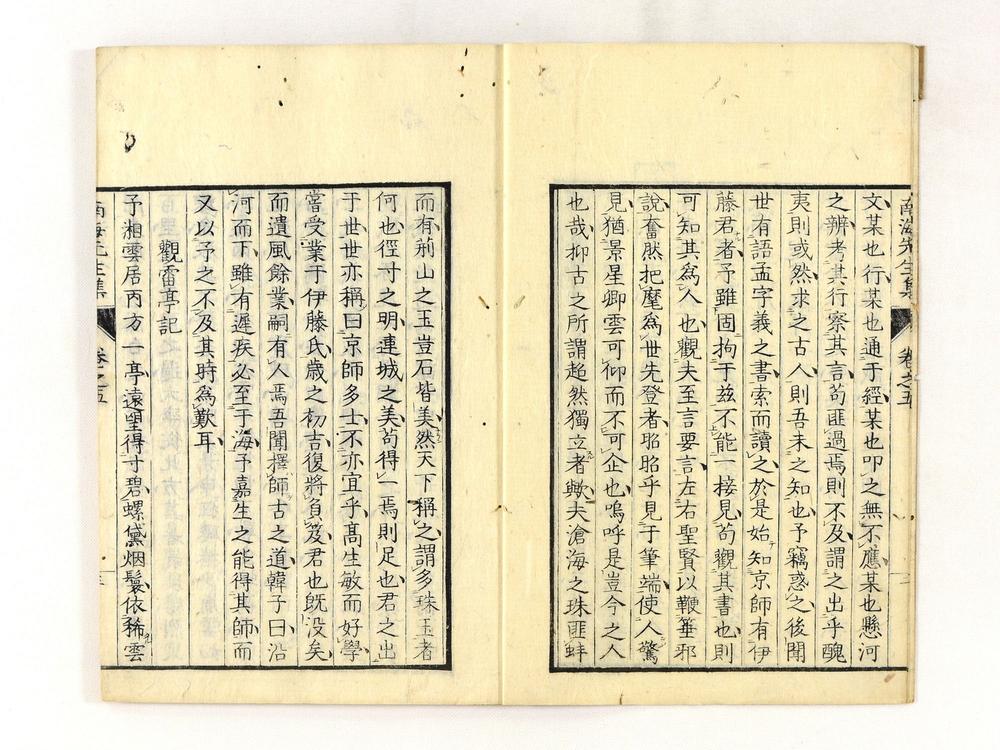 文某也行某也通于經某也叩之無不應某也懸河
之辨考其行察其言苟匪過焉則不及謂之出乎醜
夷則或然求之古人則吾未之知也予竊惑之後聞
世有語孟字義之書索而讀之於是始知京師有伊
藤君者予雖固拘于茲不能一接見苟觀其書也則
可知其爲人也觀夫至言要言左右聖賢以鞭箠邪
說奮然把麾爲世先登者昭昭乎見于筆端使人驚
見猶景星卿雲可仰而不可企也嗚呼是豈今之人
也哉抑古之所謂超然獨立者歟夫滄海之珠匪蚌
南海先生集 卷之五
而有荊山之玉豈石皆美然天下稱之謂多珠玉者
何也徑寸之明連城之美苟得一焉則足也君之出
于世世亦稱曰京師多士不亦宜乎髙生敏而好學
嘗受業于伊藤氏歲之初吉復將負笈君也旣沒矣
而遺風餘業嗣有人焉吾聞擇師古之道韓子曰沿
河而下雖有遲疾必至于海予嘉生之能得其師而
又以予之不及其時爲歎耳
觀雷亭記
予湘雲居丙方一亭遠望得寸碧螺黛烟鬟依稀雲
南海先生集 卷之五